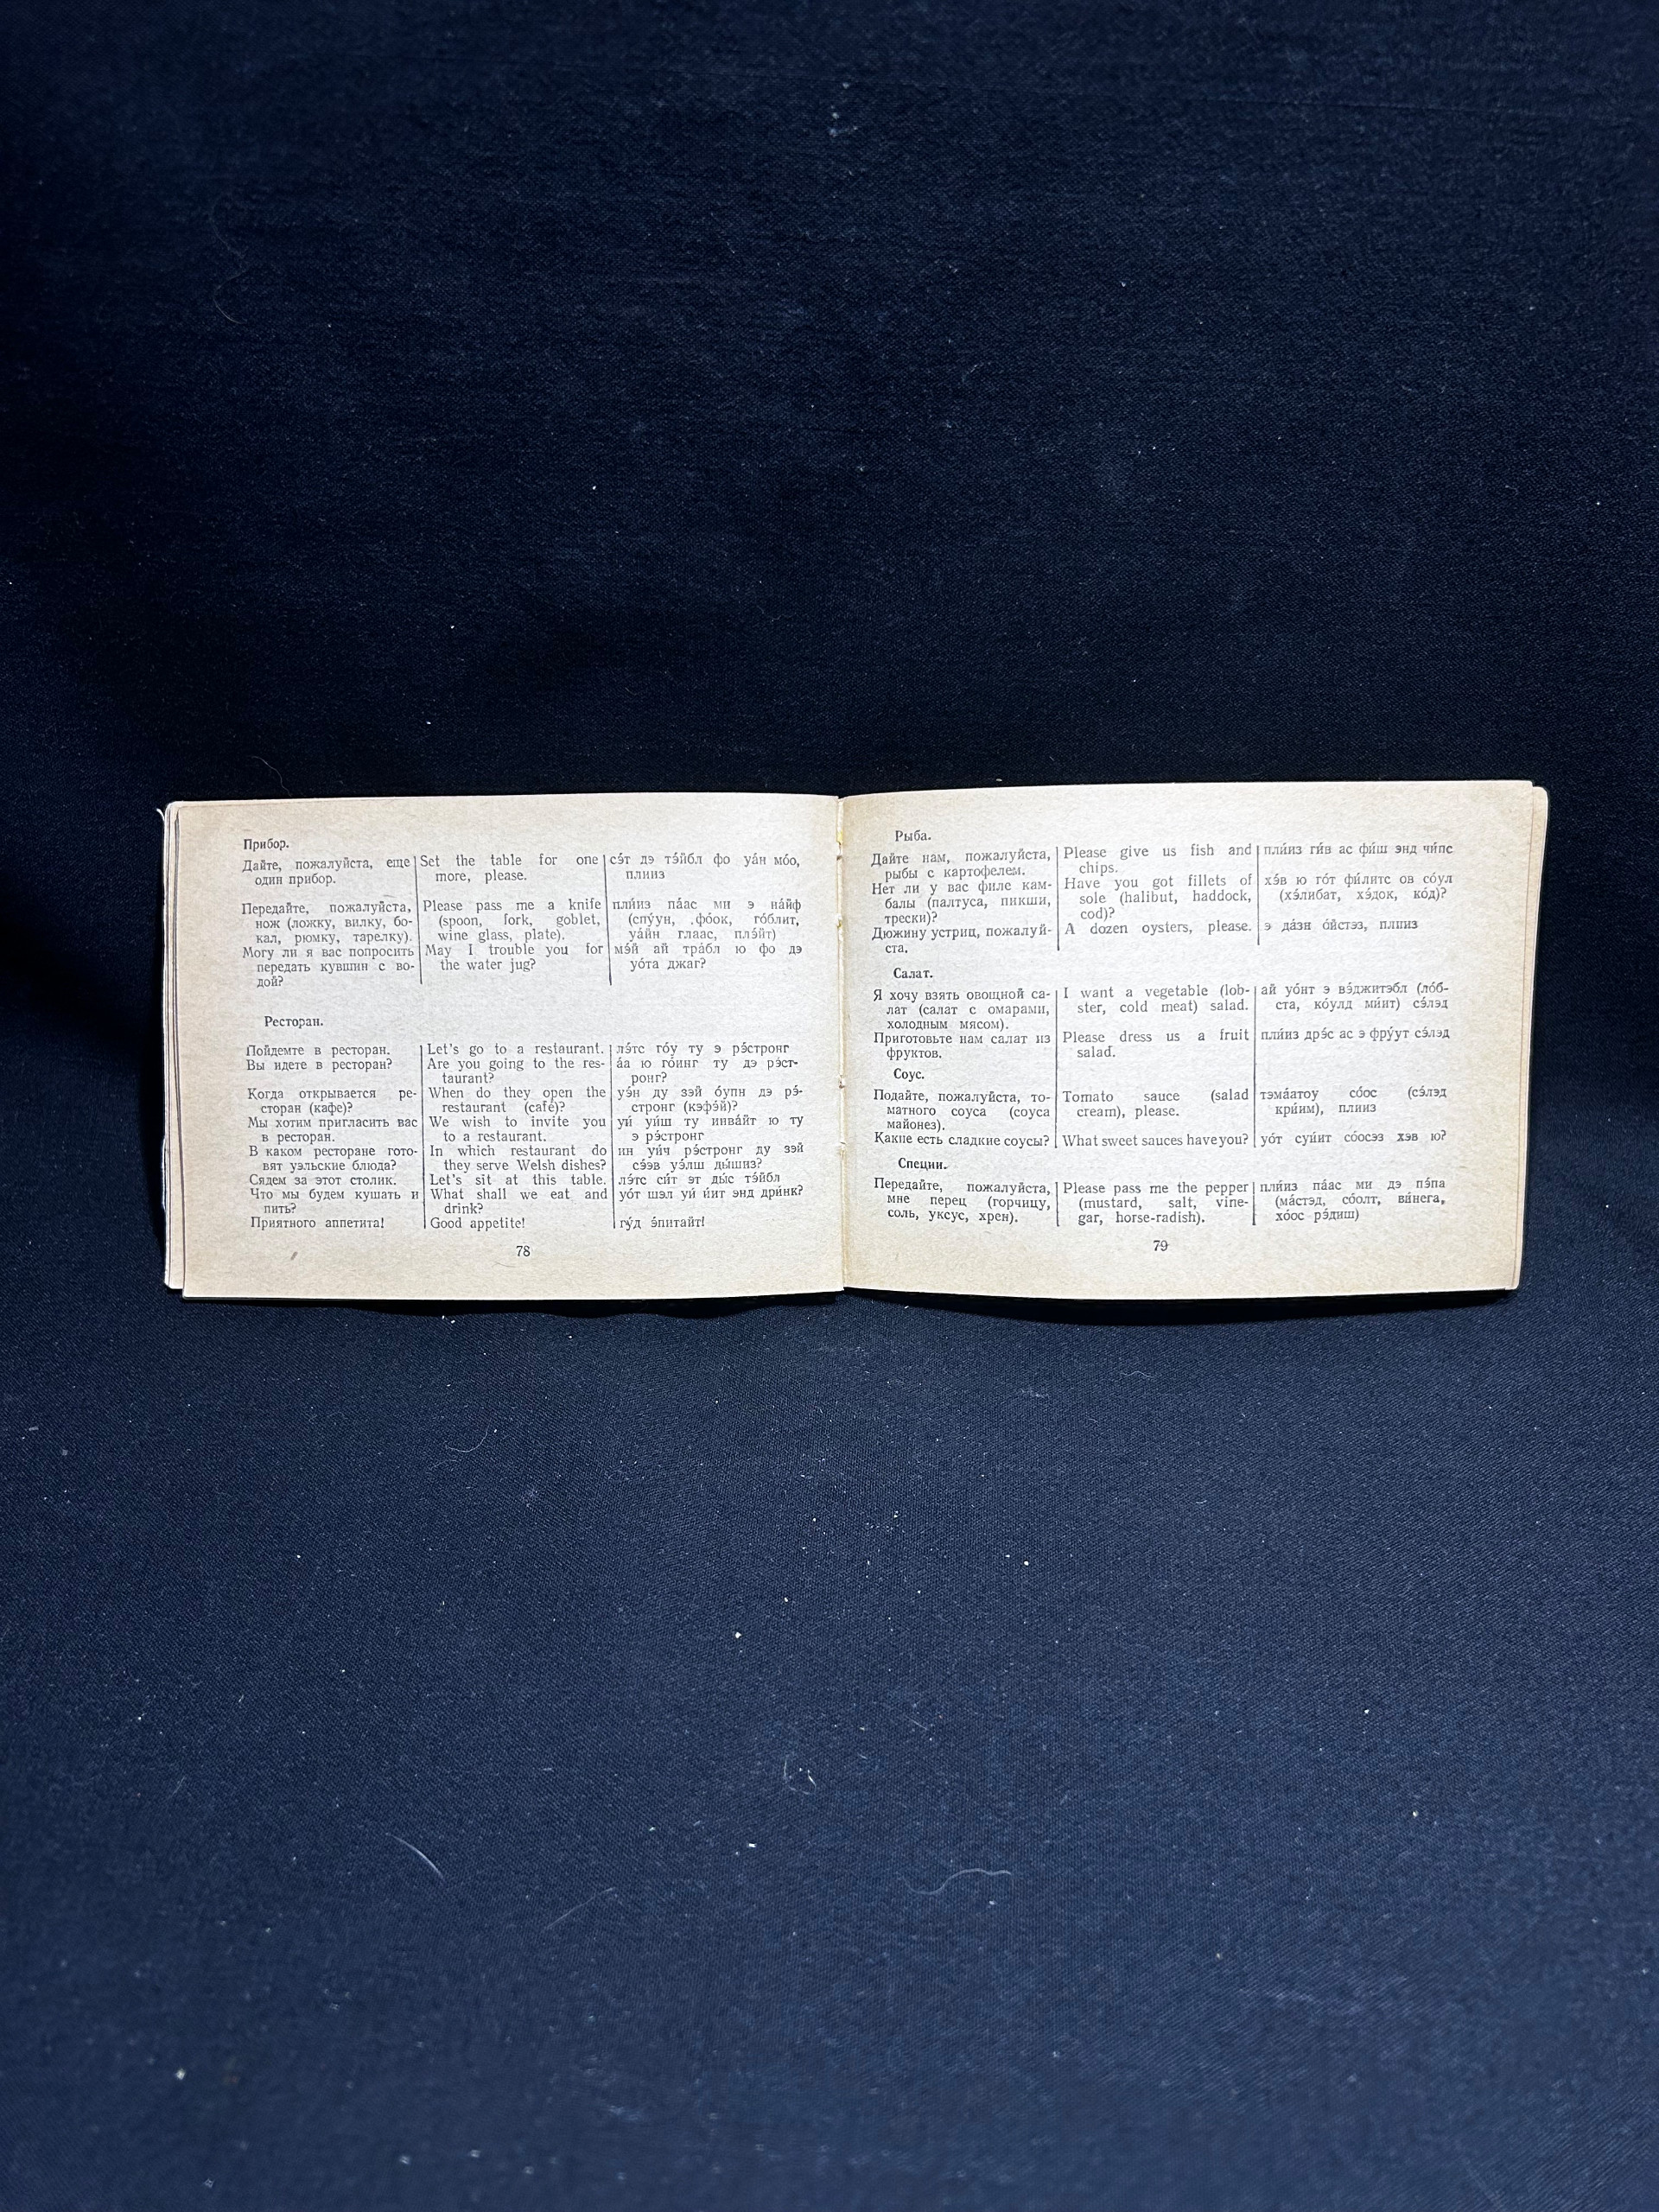 Прибор.
Дайте, пожалуйста, еще | Set the table for one | сэ́т дэ тэ́йбл фо уа́н мо́о,
один прибор. | more, please. | плииз
Передайте, пожалуйста, | Please pass me a knife | пли́из па́ас ми э на́йф
нож (ложку, вилку, бо- | (spoon, fork, goblet, | (спу́ун, фо́ок, го́блит,
кал, рюмку, тарелку). | wine glass, plate). | уа́йн глаас, плэ́йт)
Могу ли я вас попросить | May I trouble you for | мэ́й ай тра́бл ю фо дэ
передать кувшин с во- | the water jug? | уо́та джаг?
дой?
Ресторан.
Пойдемте в ресторан. | Let's go to a restaurant. | лэ́тс го́у ту э рэ́стронг
Вы идете в ресторан? | Are you going to the res- | а́а ю го́инг ту дэ рэ́ст-
taurant? | ронг?
Когда открывается ре- | When do they open the | уэ́н ду зэй о́упн дэ рэ́-
сторан (кафе)? | restaurant (café)? | стронг (кэфэ́й)?
Мы хотим пригласить вас | We wish to invite you | уи́ уи́ш ту инва́йт ю ту
в ресторан. | to a restaurant. | э рэ́стронг
В каком ресторане гото- | In which restaurant do | ин уи́ч рэ́стронг ду зэй
вят уэльские блюда? | they serve Welsh dishes? | сэ́эв уэ́лш ды́шиз?
Сядем за этот столик. | Let's sit at this table. | лэ́тс си́т эт ды́с тэ́йбл
Что мы будем кушать и | What shall we eat and | уо́т шэл уи́ и́ит энд дри́нк?
пить? | drink?
Приятного аппетита! | Good appetite! | гу́д э́питайт!
78
Рыба.
Дайте нам, пожалуйста, | Please give us fish and | пли́из ги́в ас фи́ш энд чи́пс
рыбы с картофелем. | chips.
Нет ли у вас филе кам- | Have you got fillets of | хэ́в ю го́т фи́литс ов со́ул
балы (палтуса, пикши, | sole (halibut, haddock, | (хэ́либат, хэ́док, ко́д)?
трески)? | cod)?
Дюжину устриц, пожалуй- | A dozen oysters, please. | э да́зн о́йстэз, плииз
ста.
Салат.
Я хочу взять овощной са- | I want a vegetable (lob- | ай уо́нт э вэ́джитэбл (ло́б-
лат (салат с омарами, | ster, cold meat) salad. | ста, ко́улд ми́ит) сэ́лэд
холодным мясом).
Приготовьте нам салат из | Please dress us a fruit | пли́из дрэ́с ас э фру́ут сэ́лэд
фруктов. | salad.
Соус.
Подайте, пожалуйста, то- | Tomato sauce (salad | тэма́атоу со́ос (сэ́лэд
матного соуса (соуса | cream), please. | кри́им), плииз
майонез).
Какие есть сладкие соусы? | What sweet sauces have you? | уо́т суи́ит со́осэз хэв ю?
Специи.
Передайте, пожалуйста, | Please pass me the pepper | пли́из па́ас ми дэ пэ́па
мне перец (горчицу, | (mustard, salt, vine- | (ма́стэд, со́олт, ви́нега,
соль, уксус, хрен). | gar, horse-radish). | хо́ос рэ́диш)
79